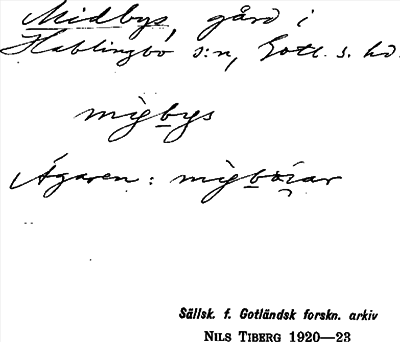 Midbys, gård i
Hablingbo s:n, Gotl. s. hd.
mìgbys
Ägaren: mìgböiar
Sällsk. f. Gotländsk forskn. arkiv
NILS TIBERG 1920—23